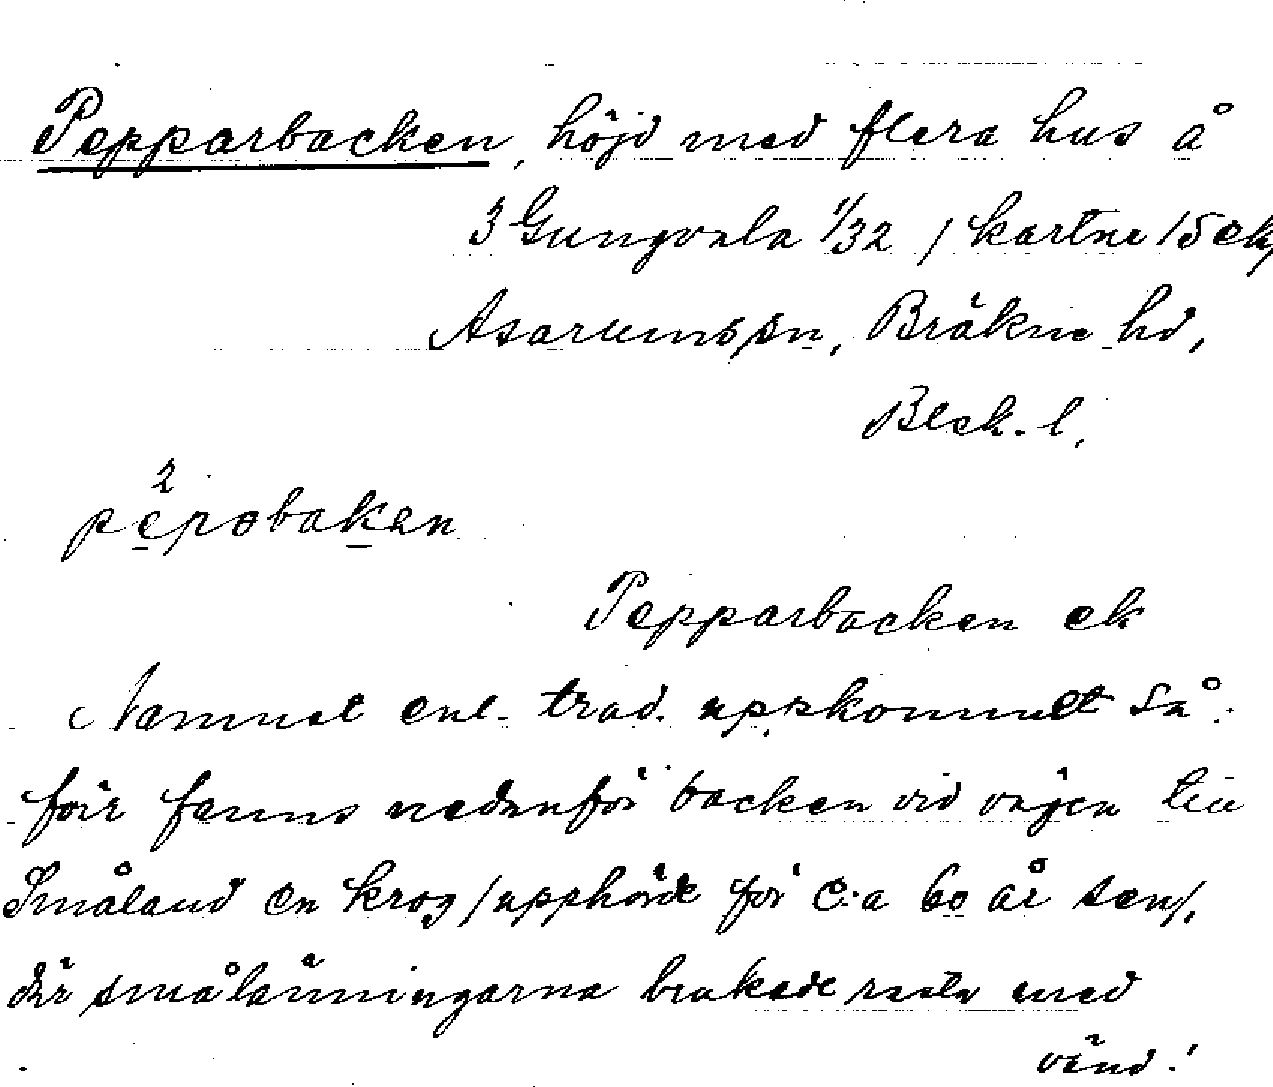 Pepparbacken, höjd med flera hus å
3 Gungvala 1/32 / kartne 15 ek,
Asarums sn, Bräkne hd,
Blek. l.
2
pepobaken
Pepparbacken ek
Namnet enl. trad. uppkommet så:
förr fanns nedanför backen vid vägen till
Småland en krog /upphörde för c:a 60 år sen/,
där smålänningarna brukade rasta med
vänd!